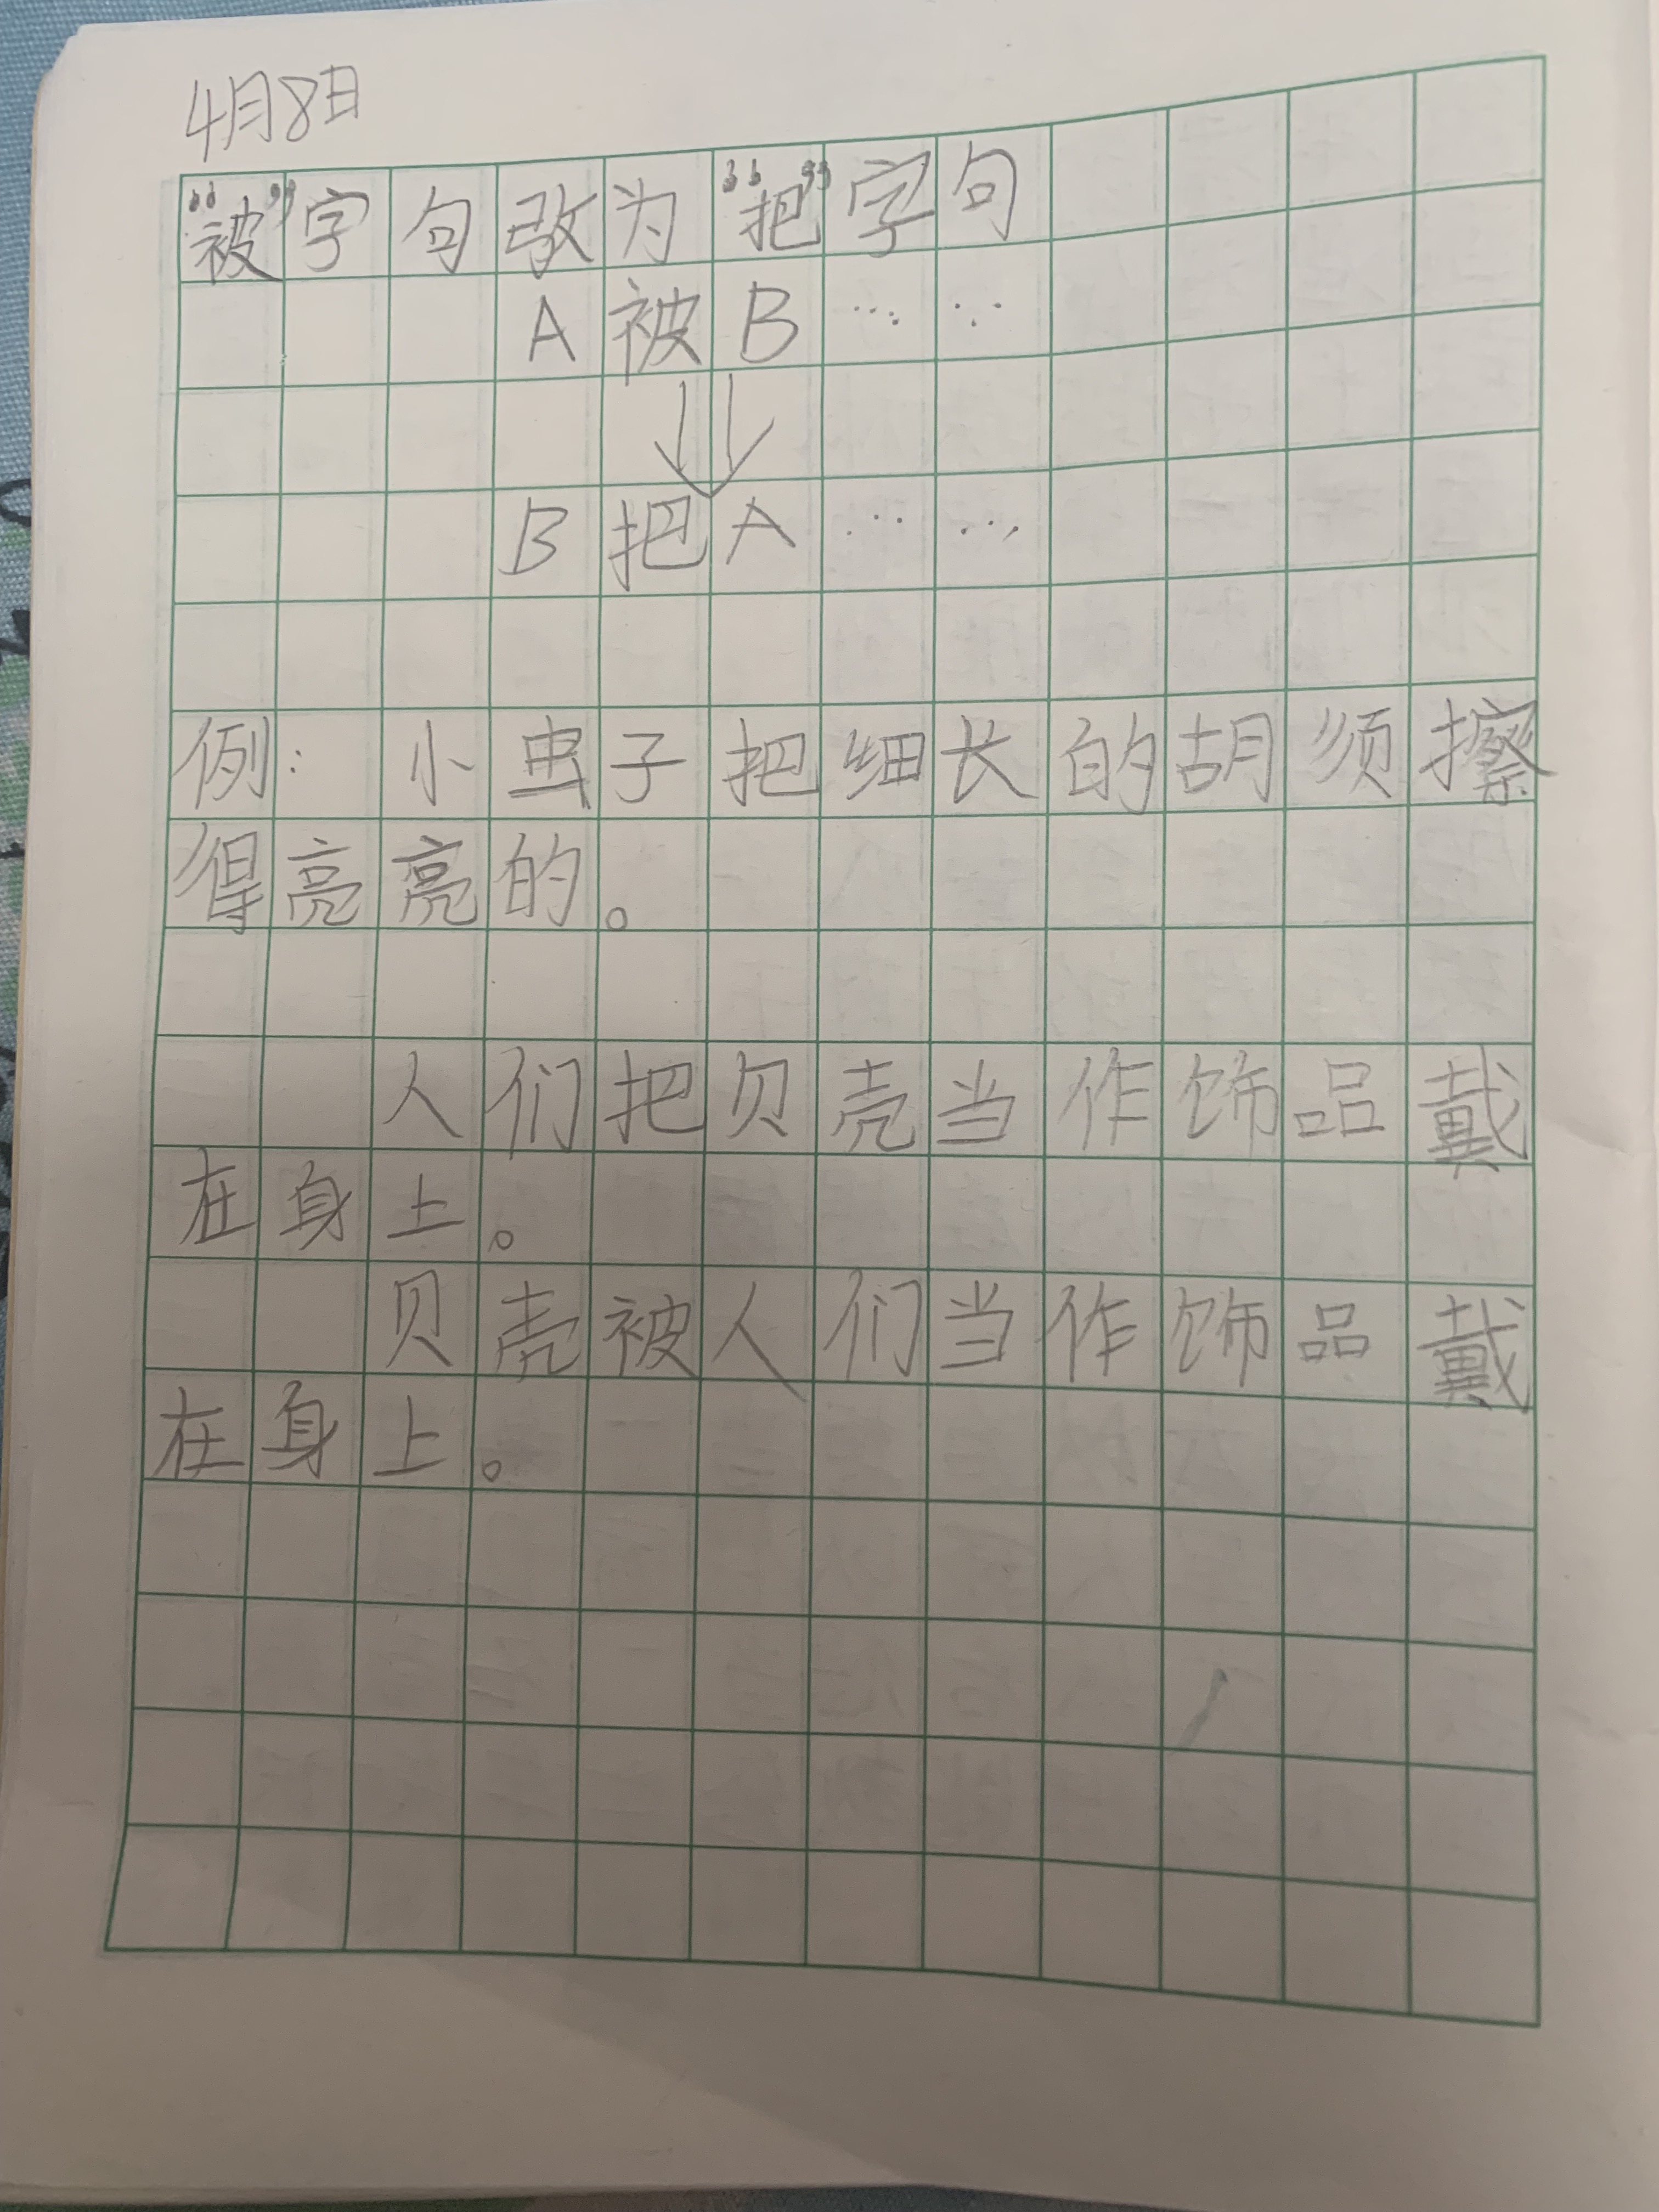 4月8日
“被”字句改为“把”字句
A被B……
B把A……
例：小虫子把细长的胡须擦
得亮亮的。
人们把贝壳当作饰品戴
在身上。
贝壳被人们当作饰品戴
在身上。